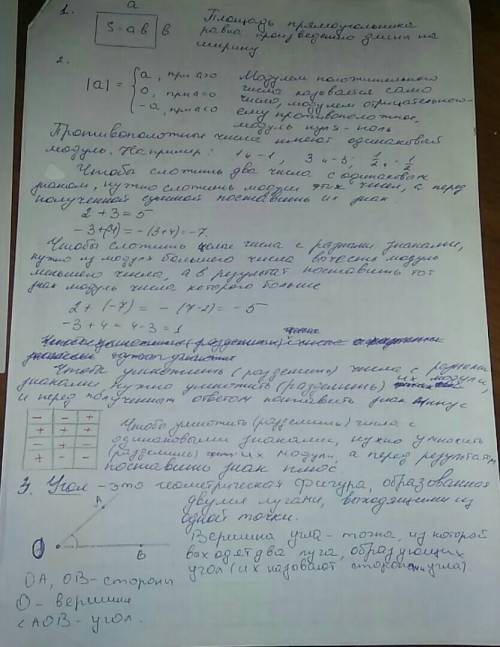 1.
a
S = a b
в
Площадь прямоугольника
равна произведению длины на
ширину
2.
|a| = { a, при a>0
0, при a=0
-a, при a<0
Модулем положительного
числа называется само
число, модулем отрицательного -
ему противоположное,
модуль нуля - ноль
Противоположные числа имеют одинаковый
модуль. Например: 1 и -1, 3 и -3; 1/2 и -1/2
Чтобы сложить два числа с одинаковым
знаком, нужно сложить модули этих чисел, а перед
полученной суммой поставить их знак
2 + 3 = 5
-3 + (-4) = -(3+4) = -7.
Чтобы сложить числа с разными знаками,
нужно из модуля большего числа вычесть модуль
меньшего числа, а в результат поставить тот
знак модуль числа которого больше
2 + (-7) = -(7-2) = -5
-3 + 4 = 4-3 = 1
Чтобы умножить (разделить) числа с разными
знаками, нужно умножить (разделить) их модули,
и перед полученным ответом поставить знак минус
- - +
+ + +
- + -
+ - -
Чтобы умножить (разделить) числа с
одинаковыми знаками, нужно умножить
(разделить) их модули, а перед результатом
поставить знак плюс.
3. Угол - это геометрическая фигура, образованная
двумя лучами, выходящими из
одной точки.
A
O
B
Вершина угла - точка, из которой
выходят два луча, образующих
угол (их называют сторонами угла)
OA, OB - стороны
O - вершина
∠AOB - угол.